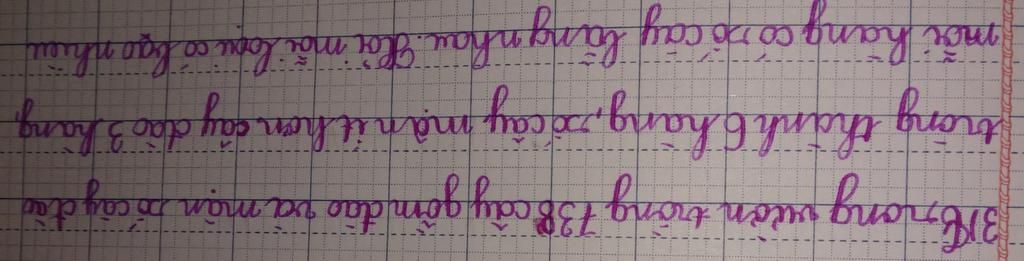 3) Trong vườn trồng 738 cây gồm đào và mận số cây đào
trồng thành 6 hàng, số cây mận ít hơn cây đào 3 hàng,
mỗi hàng có số cây bằng nhau. Hỏi mỗi loại có bao nhiêu